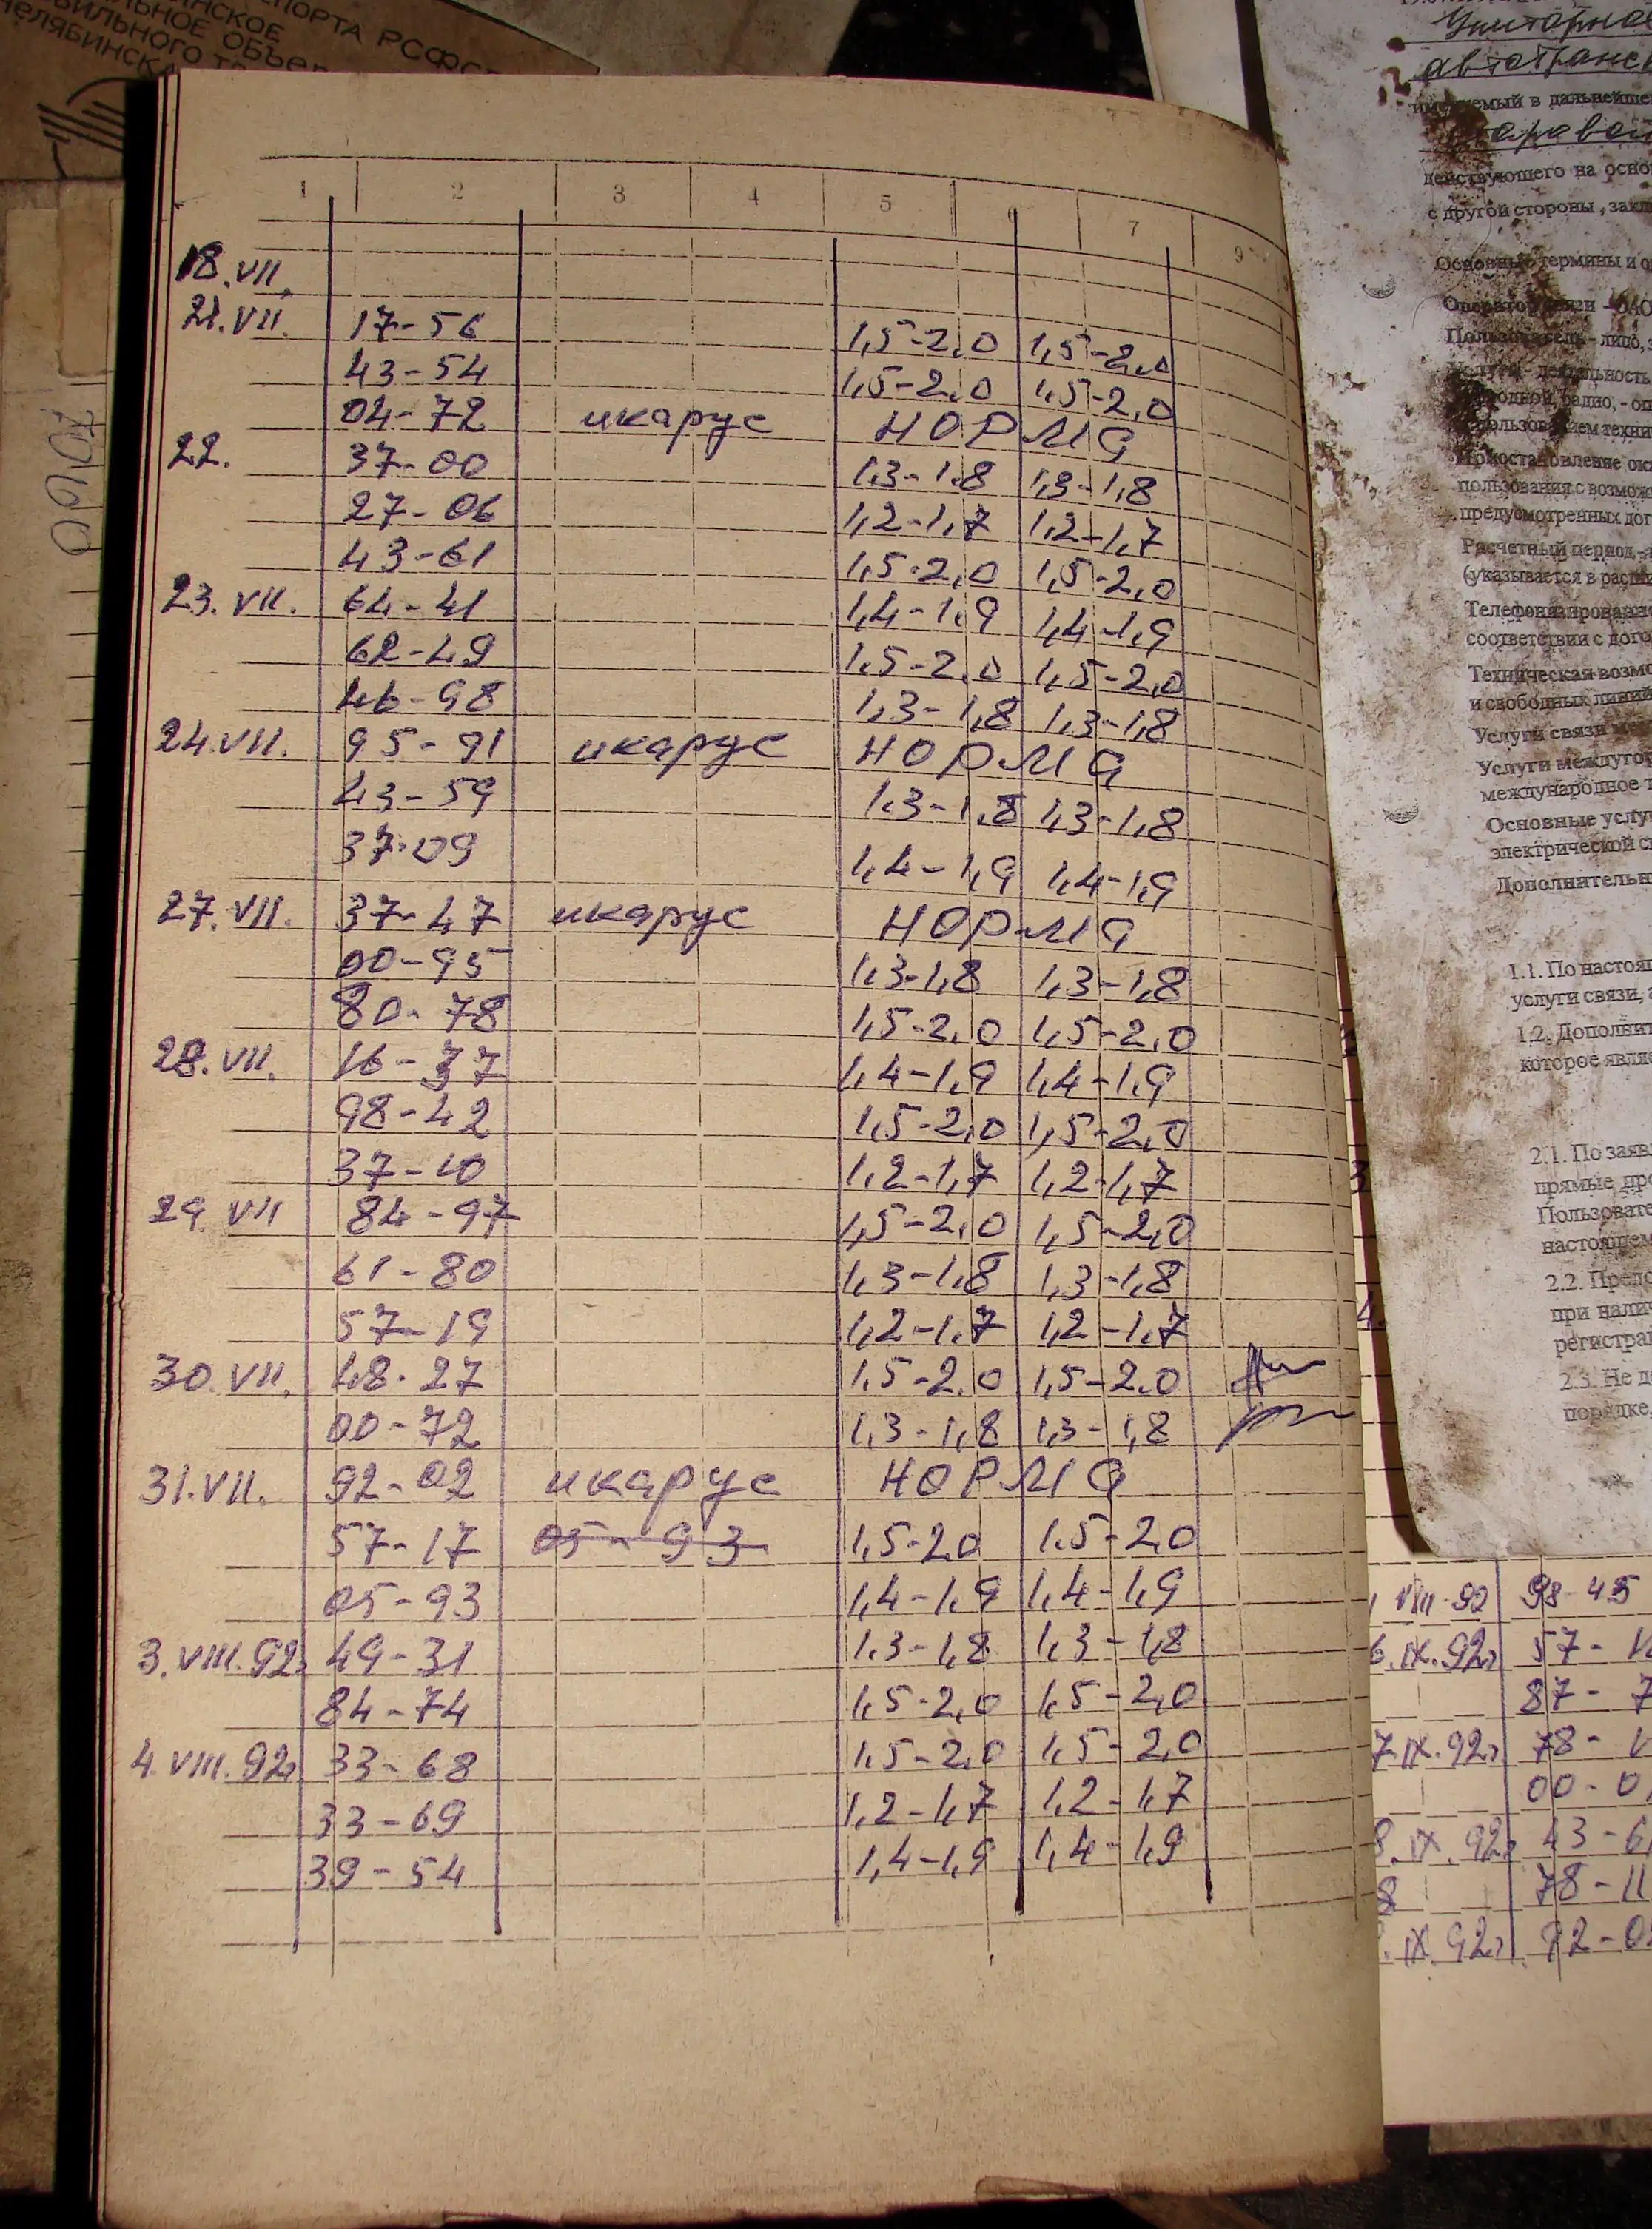 СПОРТА РСФС
ИНСКОЕ
ЛЬНОЕ ОБЪЕ
БИЛЬНОГО
ЧЕЛЯБИНСК
1 2 3 4 5 6 7 9
18.VII.
21.VII. 17-56 1,5-2,0 1,5-2,0
43-54 1,5-2,0 1,5-2,0
04-72 икарус НОРМА
22. 37-00 1,3-1,8 1,3-1,8
27-06 1,2-1,7 1,2-1,7
43-61 1,5-2,0 1,5-2,0
23.VII. 64-41 1,4-1,9 1,4-1,9
62-49 1,5-2,0 1,5-2,0
46-98 1,3-1,8 1,3-1,8
24.VII. 95-91 икарус НОРМА
43-59 1,3-1,8 1,3-1,8
37-09 1,4-1,9 1,4-1,9
27.VII. 37-47 икарус НОРМА
00-95 1,3-1,8 1,3-1,8
80-78 1,5-2,0 1,5-2,0
28.VII. 16-37 1,4-1,9 1,4-1,9
98-42 1,5-2,0 1,5-2,0
37-10 1,2-1,7 1,2-1,7
29.VII 84-97 1,5-2,0 1,5-2,0
61-80 1,3-1,8 1,3-1,8
57-19 1,2-1,7 1,2-1,7
30.VII. 48-27 1,5-2,0 1,5-2,0
00-72 1,3-1,8 1,3-1,8
31.VII. 92-02 икарус НОРМА
57-17 05-93 1,5-2,0 1,5-2,0
05-93 1,4-1,9 1,4-1,9
3.VIII.92г 49-31 1,3-1,8 1,3-1,8
84-74 1,5-2,0 1,5-2,0
4.VIII.92г 33-68 1,5-2,0 1,5-2,0
33-69 1,2-1,7 1,2-1,7
39-54 1,4-1,9 1,4-1,9
Унитарно
автотранс
именуемый в дальнейше
действующего на осно
с другой стороны, закл
Основные термины и о
Оператор связи - ОАО
Пользователь - лицо, з
Услуги - деятельность
родной, радио, - оп
спользованием техни
Приостановление ок
пользования с возмож
предусмотренных дог
Расчетный период -
(указывается в расп
Телефонизированн
соответствии с дого
Техническая возмо
и свободных линий
Услуги связи
Услуги междугор
международное т
Основные услу
электрической с
Дополнительн
1.1. По настоя
услуги связи, а
1.2. Дополнит
которое явля
2.1. По заяв
прямые про
Пользовате
настоящем
2.2. Предо
при налич
регистрац
2.3. Не д
порядке.
3
4.
VIII-92 98-45
6.IX.92г 57-
87-7
7.IX.92г 78-
00-0
8.IX.92г 43-6
8 78-11
.IX.92г 92-0